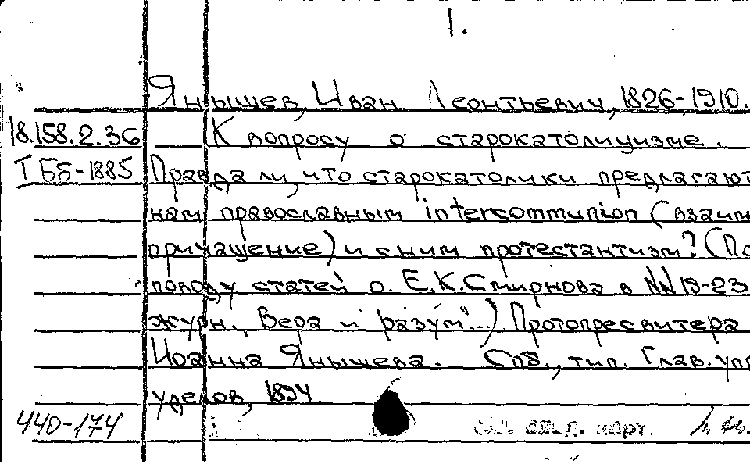 1.
Янышев, Иван Леонтьевич, 1826-1910.
18.158.2.36 К вопросу о старокатолицизме.
Т ББ-1885 Правда ли, что старокатолики предлагают
нам православным intercommunion (взаим
причащение) и с ним протестантизм? (По
поводу статей о. Е.К.Смирнова в №№ 18-23
журн. "Вера и разум"...) Протопресвитера
Иоанна Янышева. Спб., тип. Глав. упр
уделов, 1894
440-174